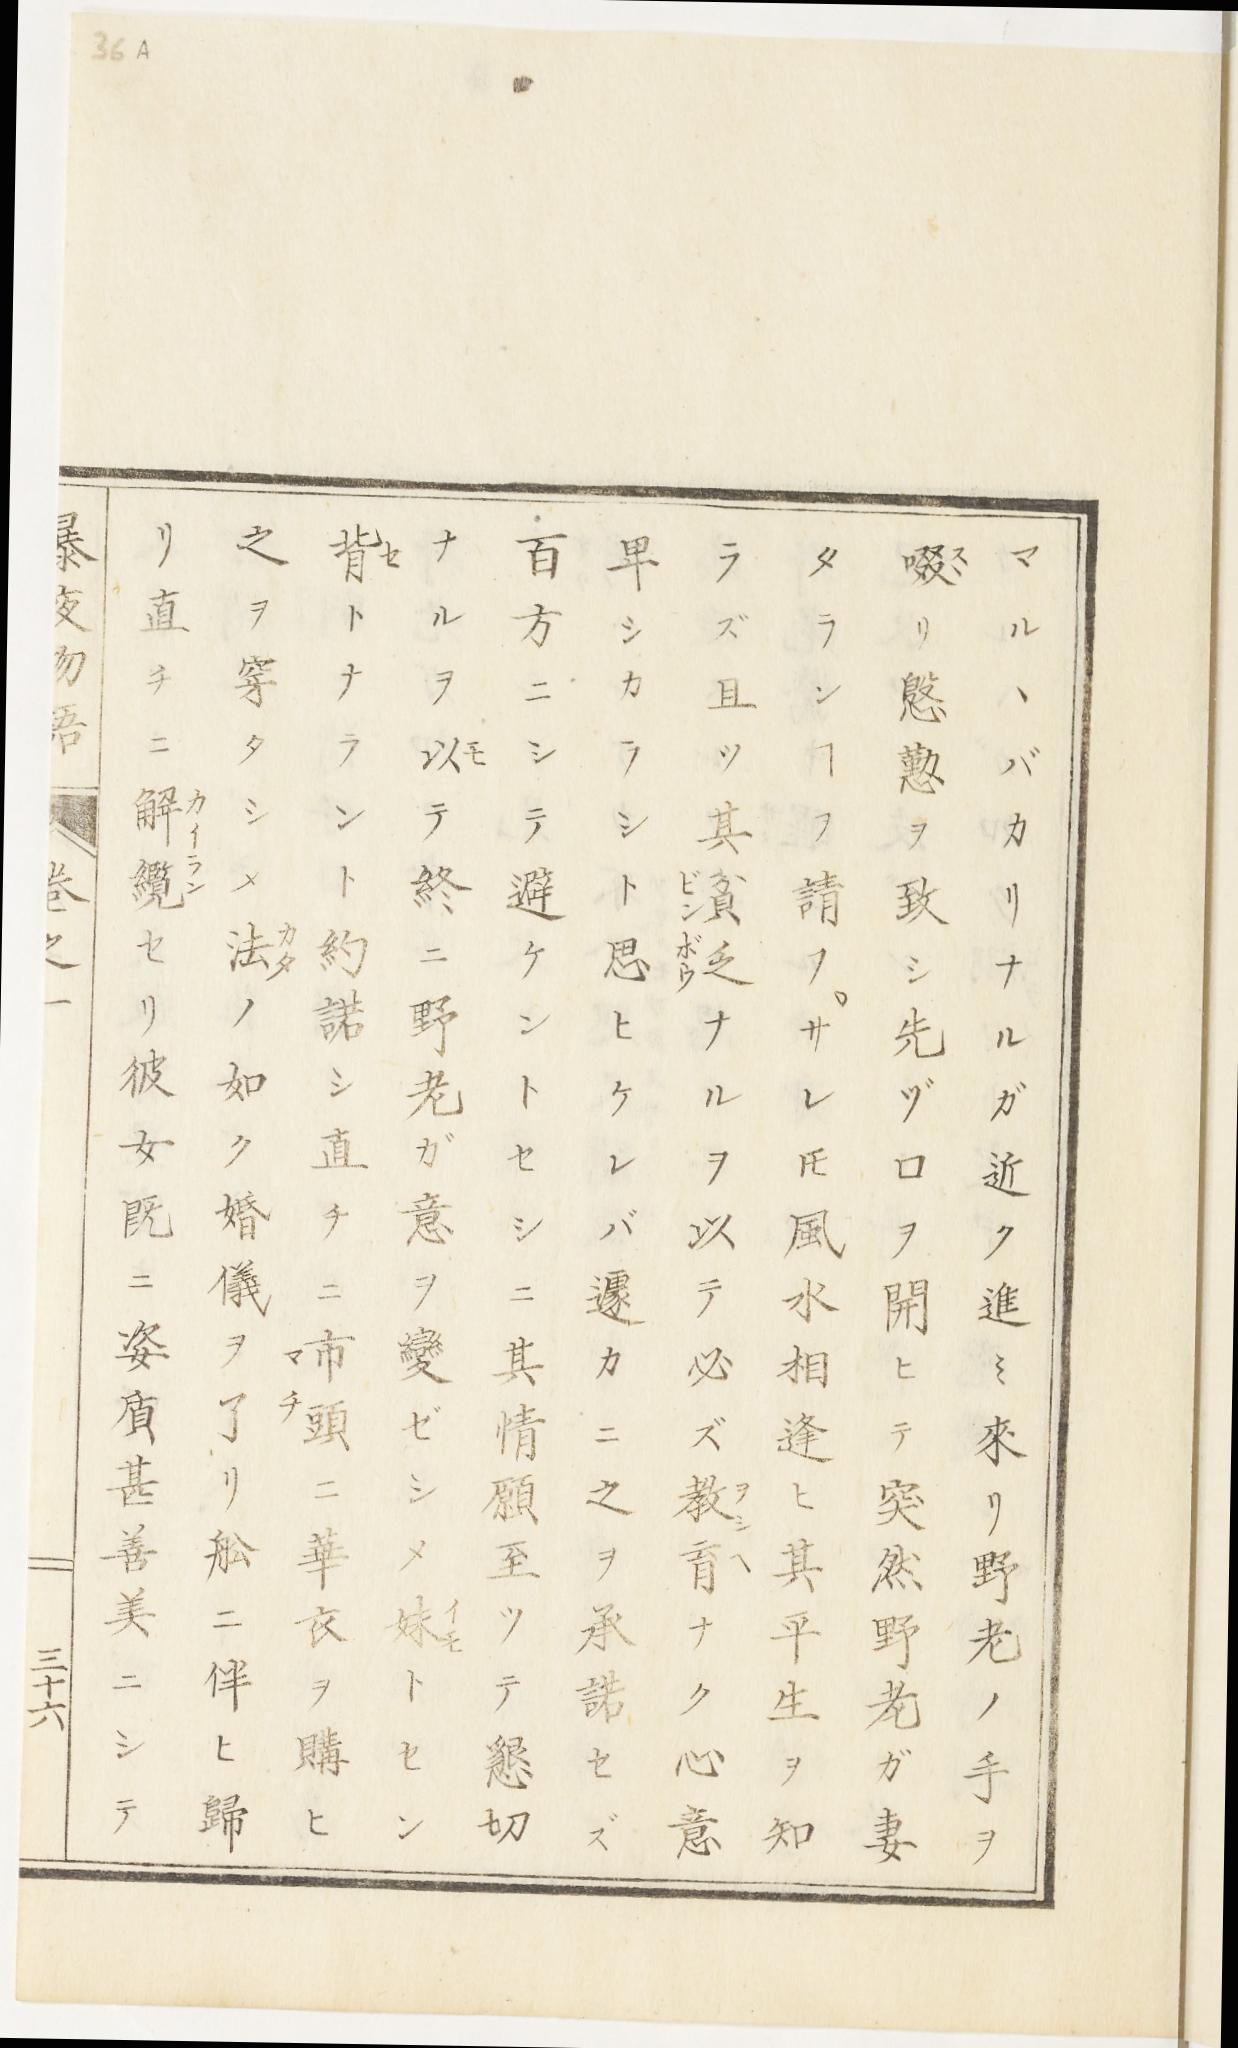 マルヽバカリナルガ近ク進ミ來リ野老ノ手ヲ
啜リ慇懃ヲ致シ先ヅ口ヲ開ヒテ突然野老ガ妻
タランヿフ請フ。サレ𪜈風水相逢ヒ其平生ヲ知
ラズ且ツ其貧乏ナルヲ以テ必ズ教育ナク心意
卑シカラシト思ヒケレバ遽カニ之ヲ承諾セズ
百方ニシテ避ケントセシニ其情願至ツテ懇切
ナルヲ以テ終ニ野老ガ意ヲ變ゼシメ妹トセン
背トナラント約諾シ直チニ市頭ニ華衣ヲ購ヒ
之ヲ穿タシメ法ノ如ク婚儀ヲ了リ舩ニ伴ヒ歸
リ直チニ解纜セリ彼女既ニ姿質甚善美ニシテ
暴夜物語
卷之一
三十六
36 A